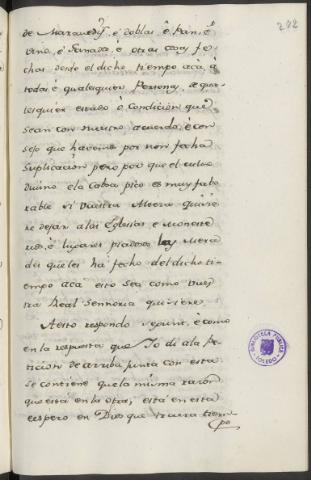 242
de Maravedys, é doblas é Pan, é
vino, é Ganado, é otras cosas fe-
chas desde el dicho tiempo acá à
todas é qualesquier Personas, de qua-
lesquier estado ò condicion que
sean con nuestro acuerdo, é con-
sejo que havemos por non fecha
suplicacion pero por que el culto
Divino e la cosa pia es muy favo-
rable si Vuestra Alteza quisie-
re dejar a las Eglesias é Moneste-
rios, é lugares piadosos las Merce-
des que les ha fecho del dicho ti-
empo acá esto sea como Vues-
tra Real Sennoria quisiere.
A esto respondo segun, é como
en la respuesta que Yo di a la Pe-
ticion de arriba junta con esta
se contiene que la misma razon
que está en la otra, está en esta
espero en Dios que traera tiem-
po
BIBLIOTECA PUBLICA
TOLEDO